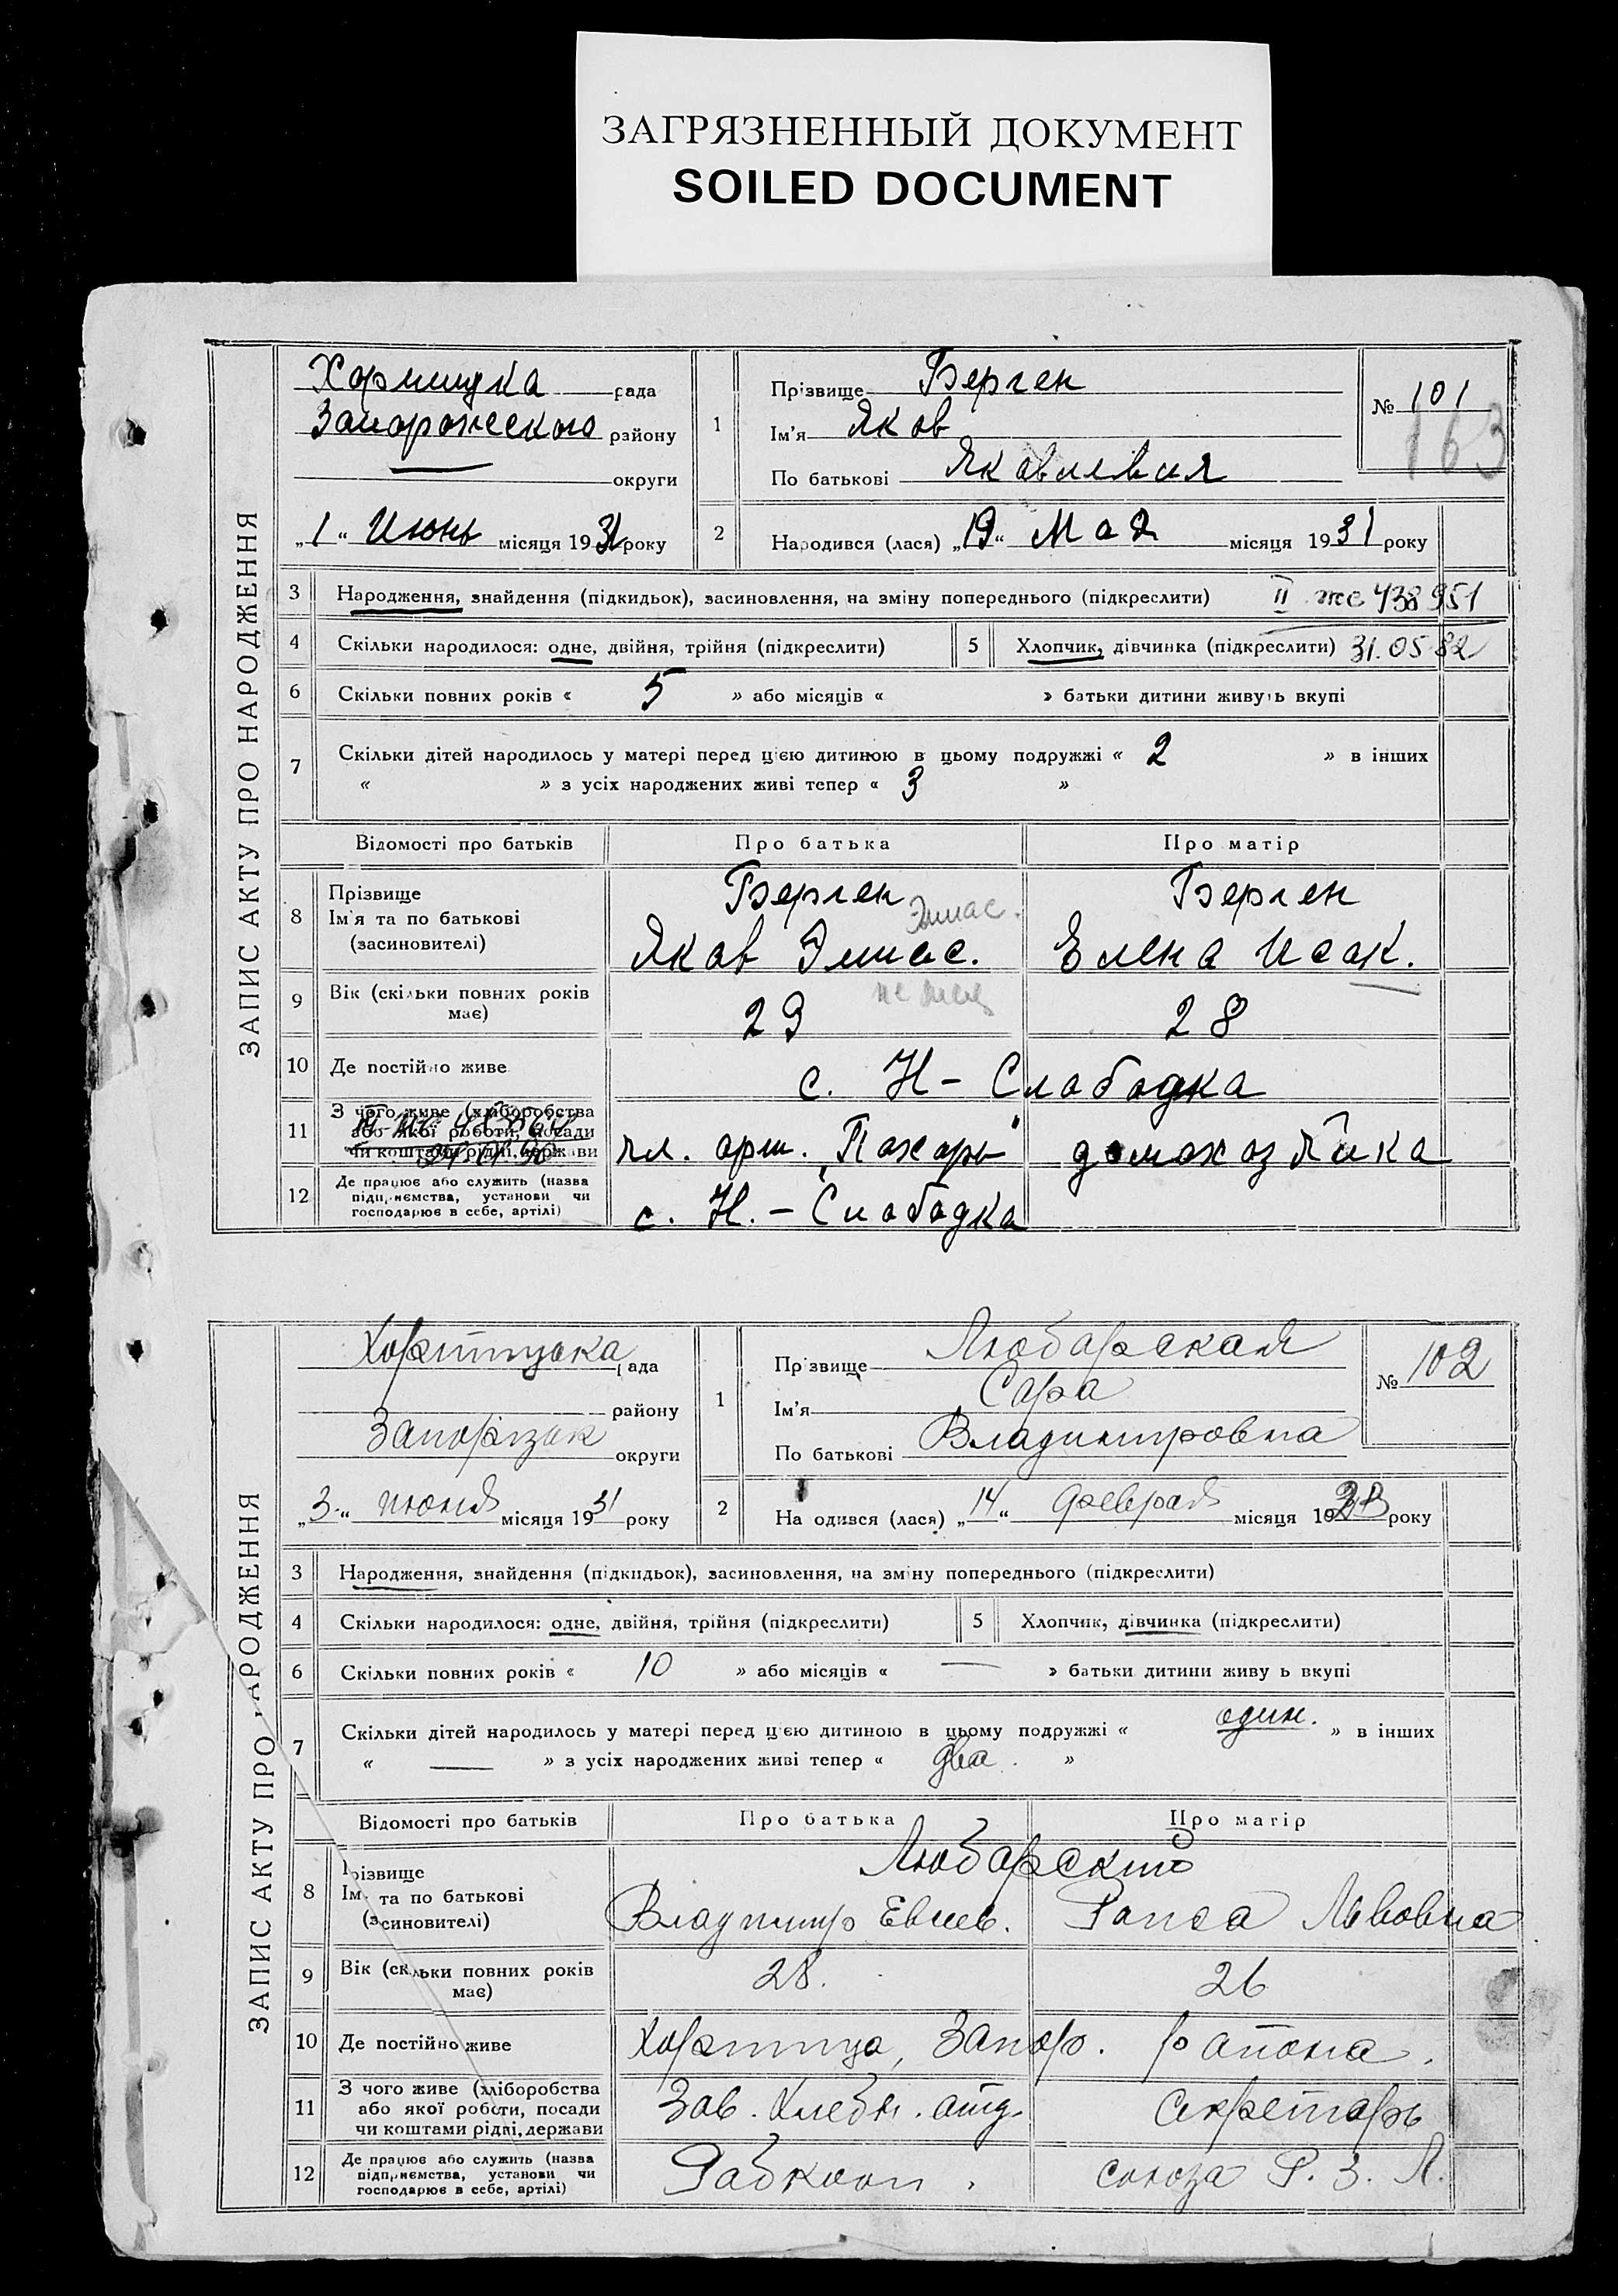 ЗАГРЯЗНЕННЫЙ ДОКУМЕНТ
SOILED DOCUMENT
ЗАПИС АКТУ ПРО НАРОДЖЕННЯ
Хортицка рада
Запорожского району
округи
„1“ Июнь місяця 1931 року
1
Прізвище Берген
Ім'я Яков
По батькові Яковлевич
№ 101
163
2
Народився (лася) „19“ Мая місяця 1931 року
3 Народження, знайдення (підкидьок), засиновлення, на зміну попереднього (підкреслити) II жс 438951
4 Скільки народилося: одне, двійня, трійня (підкреслити) 5 Хлопчик, дівчинка (підкреслити) 31.05 82
6 Скільки повних років « 5 » або місяців « » батьки дитини живуть вкупі
7 Скільки дітей народилось у матері перед цією дитиною в цьому подружжі « 2 » в інших
« » з усіх народжених живі тепер « 3 »
Відомості про батьків Про батька Про матір
8 Прізвище
Ім'я та по батькові
(засиновителі)
Берген Берген
Яков Елена Исак.
9 Вік (скільки повних років
має) 29 28
10 Де постійно живе с. Н - Слободка
11 З чого живе (хліборобства
або якої роботи, посади
чи коштами рідні, держави
чл. арт. „Пахарь“ домохозяйка
12 Де працює або служить (назва
підприємства, установи чи
господарює в себе, артілі)
с. Н. - Слободка
ЗАПИС АКТУ ПРО НАРОДЖЕННЯ
Хортицка рада
району
Запорізк округи
„3“ июня місяця 1931 року
1
Прізвище Любарская
Ім'я Сара
По батькові Владимировна
№ 102
2
Народився (лася) „14“ февраля місяця 19 року
3 Народження, знайдення (підкидьок), засиновлення, на зміну попереднього (підкреслити)
4 Скільки народилося: одне, двійня, трійня (підкреслити) 5 Хлопчик, дівчинка (підкреслити)
6 Скільки повних років « 10 » або місяців « — » батьки дитини живуть вкупі
7 Скільки дітей народилось у матері перед цією дитиною в цьому подружжі « один. » в інших
« — » з усіх народжених живі тепер « два. »
Відомості про батьків Про батька Про матір
8 Прізвище
Ім'я та по батькові
(засиновителі)
Любарский
Владимир Евсеев. Раиса Львовна
9 Вік (скільки повних років
має) 28. 26
10 Де постійно живе Хортица, Запор. района.
11 З чого живе (хліборобства
або якої роботи, посади
чи коштами рідні, держави
Зав. Хлебн. отд. секретарь
12 Де працює або служить (назва
підприємства, установи чи
господарює в себе, артілі)
Рабкооп. союза Р. З. Л.